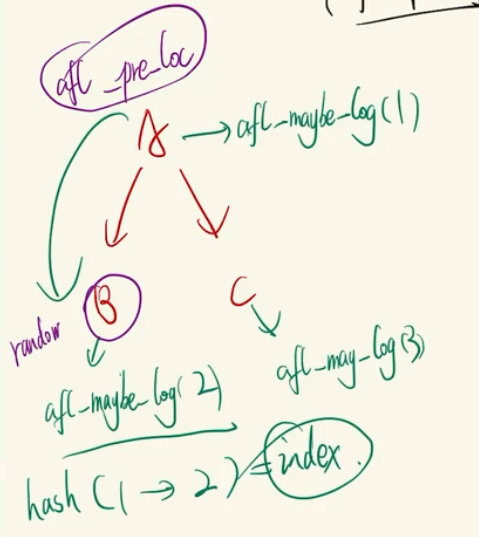 afl_pre_loc
A → afl-maybe-log(1)
B
C
random
afl-may-log(3)
afl-maybe-log(2)
hash (1 → 2) = index.